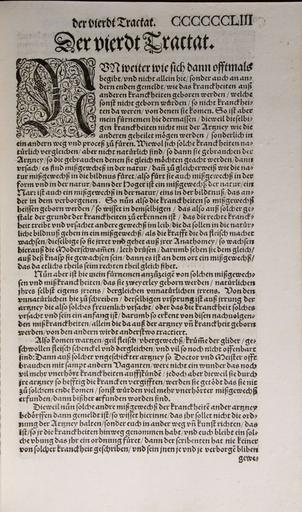 der vierdt Tractat. CCCCCCLIII
Der vierdt Tractat.
NVN weiter wie sich dann offtmals
begibt / vnd nicht allein hie / sonder auch an an-
dern enden gemeldt / wie das kranckheiten auß
anderen kranckheiten geboren werden / welche
sonst nicht geboren würden / so nicht kranckhei-
ten da weren / von denen sie komen. So ist aber
mein fürnemen hie dermassen / dieweil dieselbi-
gen kranckheiten nicht mit der Artzney wie die
anderen geheilet mögen werden / sonderlich in
ein andern weg vnd proceß zů füren. Wiewol sich solche kranckheiten na-
türlich vergleichen / aber nicht natürlich sind / so dann sie gebrauchen der
Artzney / so die gebrauchen denen sie gleich möchten geacht werden / dann
vrsach / es sind mißgewechß in der natur / dañ zů gleicherweiß wie die na-
tur mißgewechß in die bildnuß füret / also füret sie auch mißgewechß in der
form vnd in der natur / dann der
Narr ist auch ein mißgewechß in der natur / eins in der bildtnuß / das an-
der in dem verborgenen. So nůn also die kranckheiten so mißgewechß
heissen geboren werden / so wisset in denselbigen / das also auß solcher ge-
stalt der grundt der kranckheiten zů erkennen ist / das die recht kranck-
heit treibt vnd vrsachet andere gewechß im leib / die da sollen in die natür-
liche bildtnuß gehen in ein mißgewechß / als die krafft die das fleisch machet
wachsen / dieselbige so sie jrret vnd gehet auß jrer Anathomey / so wachsen
hierauß die Moderschwammen / leth drüsen / darumb haben sie dz fleisch /
auß deß krafft sie gewachsen sein / dann es ist an dem ort ein mißgewechß /
das da etliche theils seim rechten theil gleich sihet.
Nůn aber ist hie mein fürnemen anzůzeigẽ von solchen mißgewechs-
sen vnd mißkranckheiten / das sie zweyerley geboren werden / natürlichen
jhres selbst eigens jrrens / dergleichen vnnatürlichen jrrens. Von den
vnnatürlichen hie zů schreiben / derselbigen vrsprung ist auß jrrung der
artzney / die also solches frembde vrsacht / oder das die kranckheit solches
vrsacht vnd sein ein anfang ist / darumb so erkent von disen nachuolgen-
den mißkranckheiten / allein die da auß der artzney vñ kranckheit geborn
werden / von den andern wirdt anderstwo tractiert.
Also komen warzen / geil fleisch / vbergewechß / krümme der glider / ge-
schwollen fleisch / schenckel vnd dergleichen / vnd vil so noch nicht offenbart
sind: Dann auß solcher vngeschickter artzney so Doctor vnd Meister offt
brauchen mit sampt andern Vaganten / were nicht ein wunder das noch
vil mehr vnerhört kranckheiten aufferstünde / jedoch aber dieweil sie durch
jre artzney so hefftig die krancken vergifften / werden sie getödt das sie nit
zů solchem ende komen / sonst würden viel mehr vnerhörter mißgewechß
erfunden / dann bißher erfunden worden sind.
Dieweil nůn solche andre mißgewechß der kranckheit ander artzney
bedörffen dann gemeldt ist / so wisset hierinn / das jhr sollet nicht die ord-
nung der Artzney halten / sonder euch in ander weg vñ kunst richten / das
ist / so jr die kranckheiten hinweg genommen habt / vnd euch bleibt ein sol-
che vbung das jhr ein ordnung füret / dann der scribenten hat nie keiner
von solcher kranckheit geschriben / vnd sein jnen je vnd je verborgẽ bliben
gewe-